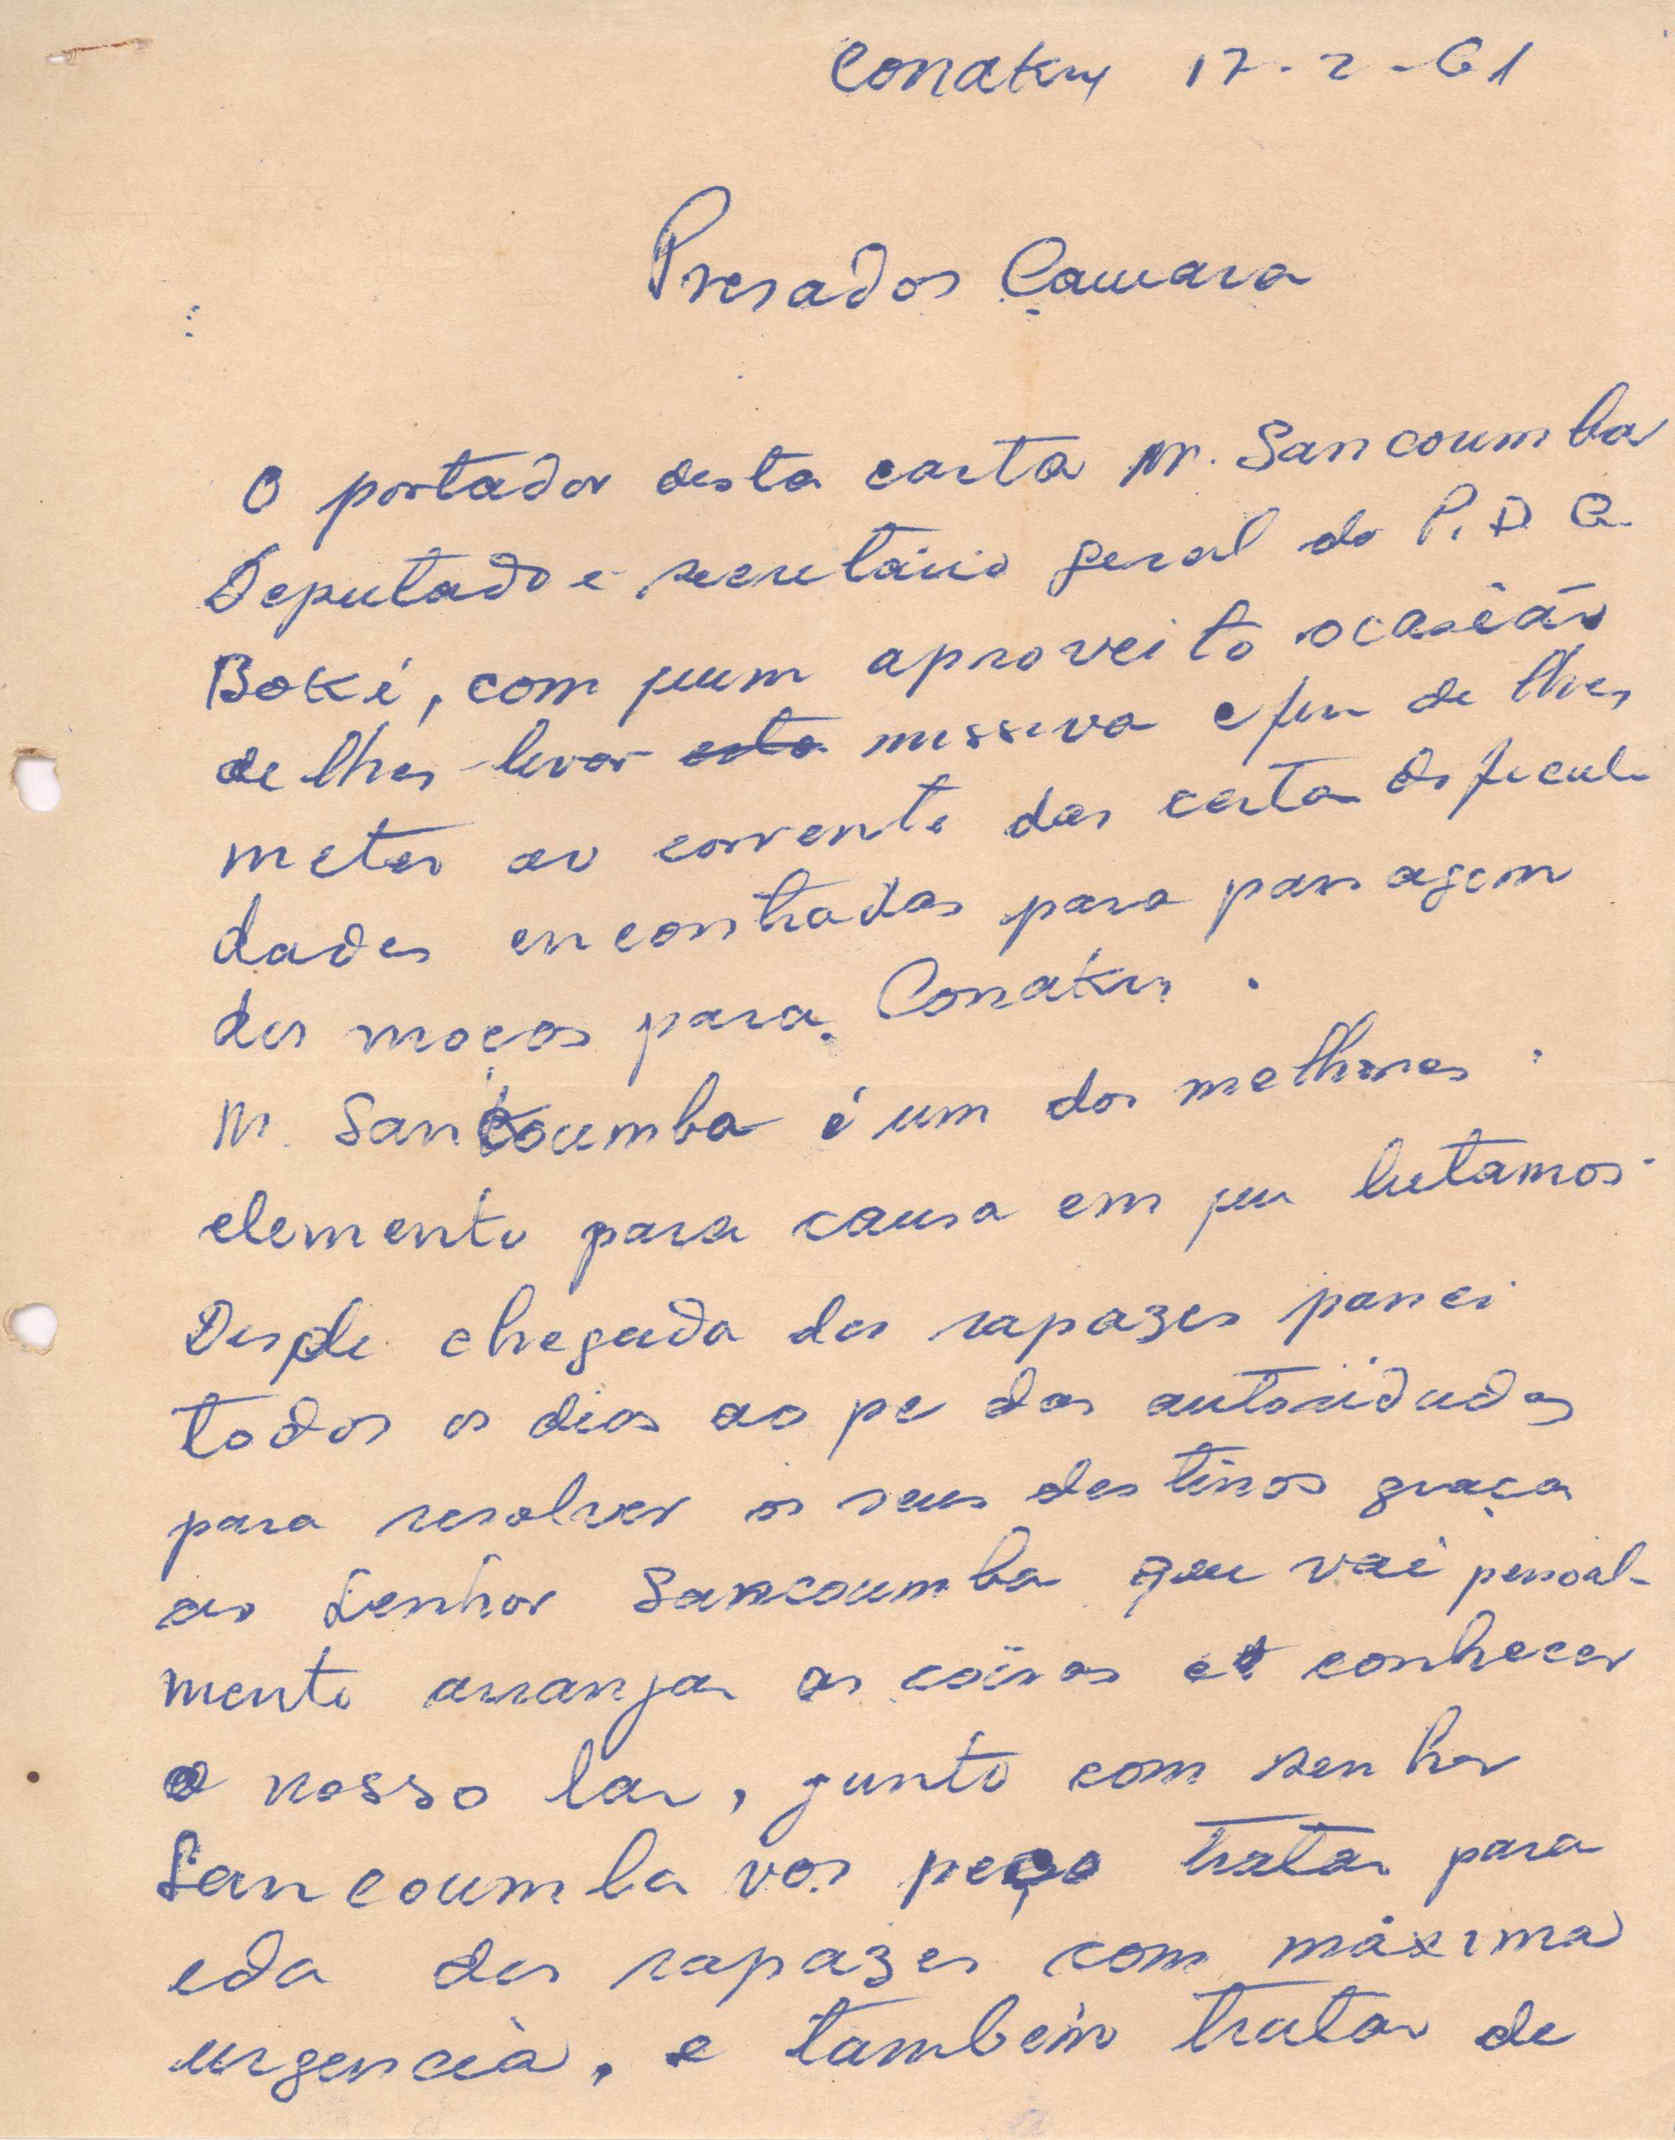 Conakry 17-2-61
Presados Camara
O portador desta carta Mr. Sancoumba
Deputado e secretáiio geral do P. D. G.
Boké, com quem aproveito ocasião
de lhes levar esta missiva e fin de lhes
meter ao corrente das certa deficul-
dades encontradas para passagem
des moços para Conakry.
M. Sancoumba é um dos melhores
elemento para causa em que lutamos.
Desde chegada des rapazes passei
todos os dias ao pe das autoridades
para resolver os seus destinos graça
ao Senhor Sancoumba que vai pessoal-
mente arranjar as coisas et conhecer
o nosso lar, junto com senhor
Sancoumba vos peço tratar para
eda des rapazes com máxima
urgencià, e também tratar de